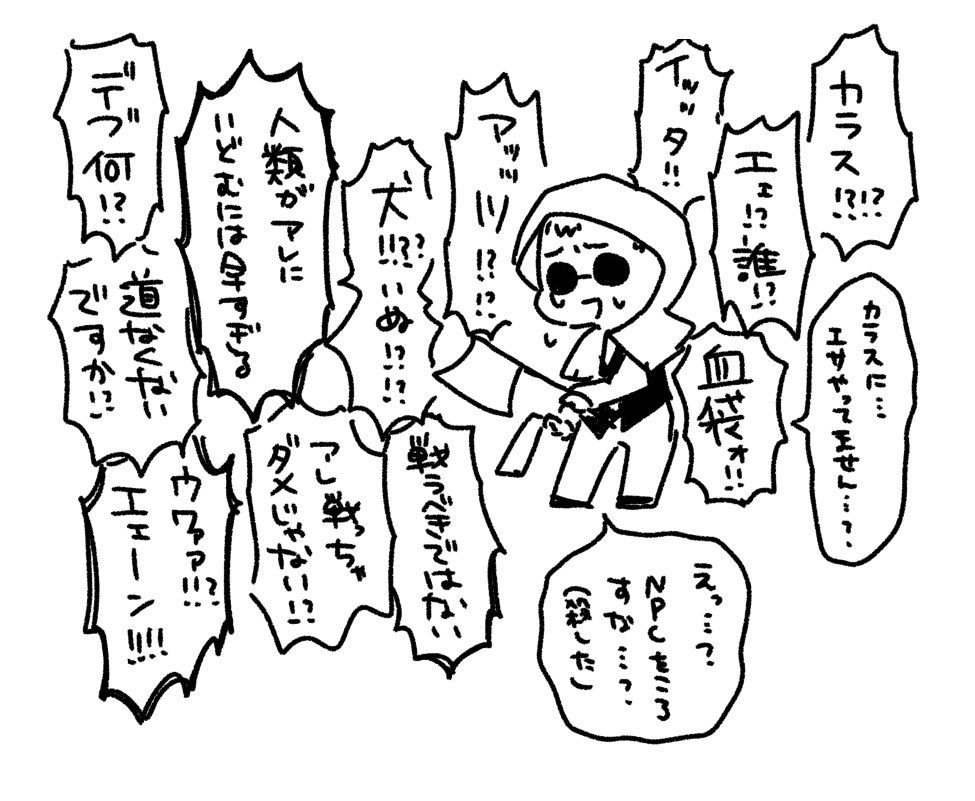 カラス!?!?
イッッタ!!
エェ!?誰!?
カラスに…
エサやってません…?
血袋ォ!!
アッッツ!!?!?
犬!!!??いぬ!?!?
人類がアレに
いどむには早すぎる
デブ何!?
道なくない
ですか!?
戦うべきではない
アレ戦っちゃ
ダメじゃない!?
ウワァァ!!?
エェーン!!!!
えっ…?
NPCをころ
すな…?
(殺した)